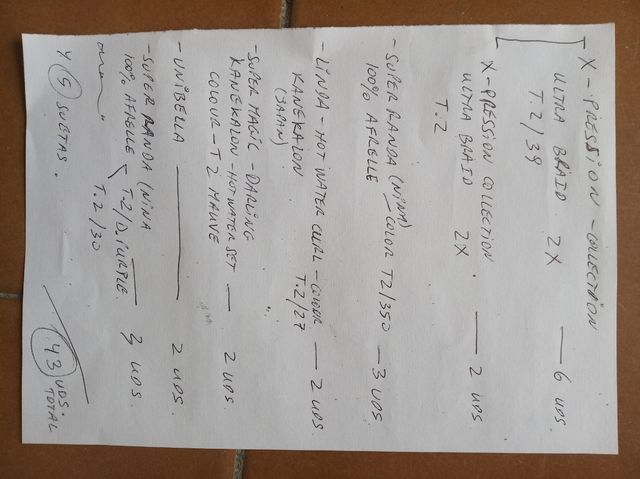 X-PRESSION-COLLECTION
ULTRA BRAID 2X — 6 UDS
T.2/39
X-PRESSION COLLECTION
ULTRA BRAID 2X — 2 UDS
T.2
-SUPER RANDA (NINA)
100% AFRELLE COLOR T2/350 — 3 UDS.
-LINDA-HOT WATER CURL-COLOUR — 2 UDS.
KANEKALON T.2/27
(JAPAN)
-SUPER MAGIC-DARLING
KANEKALON-HOTWATER SET — 2 UDS
COLOUR-T2 MAUVE
-UNIBELLA — 2 UDS.
-SUPER RANDA (NINA
100% AFRELLE — T.2/D.PURPLE. — 3 UDS
T.2/30
Y (5) SUETAS.
43 UDS.
TOTAL